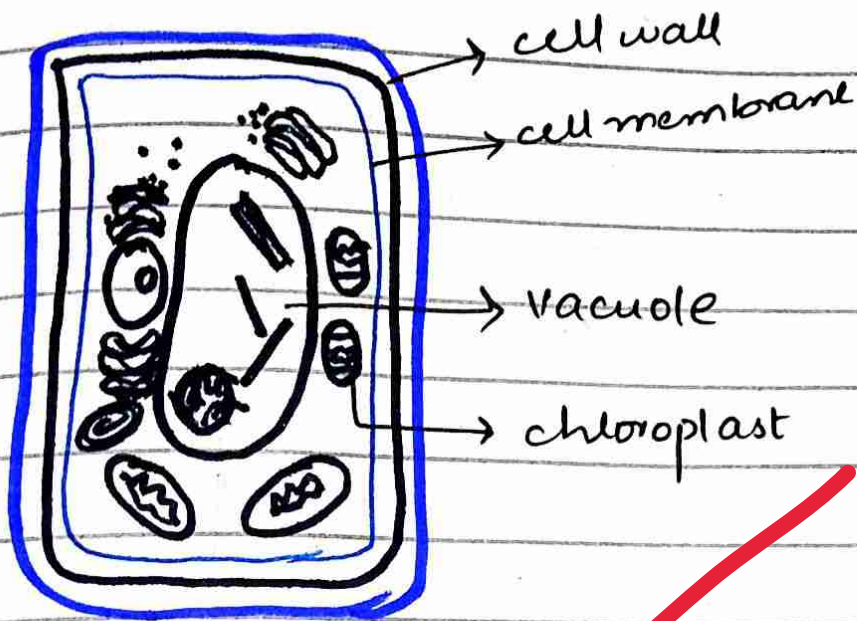 cell wall
cell membrane
vacuole
chloroplast